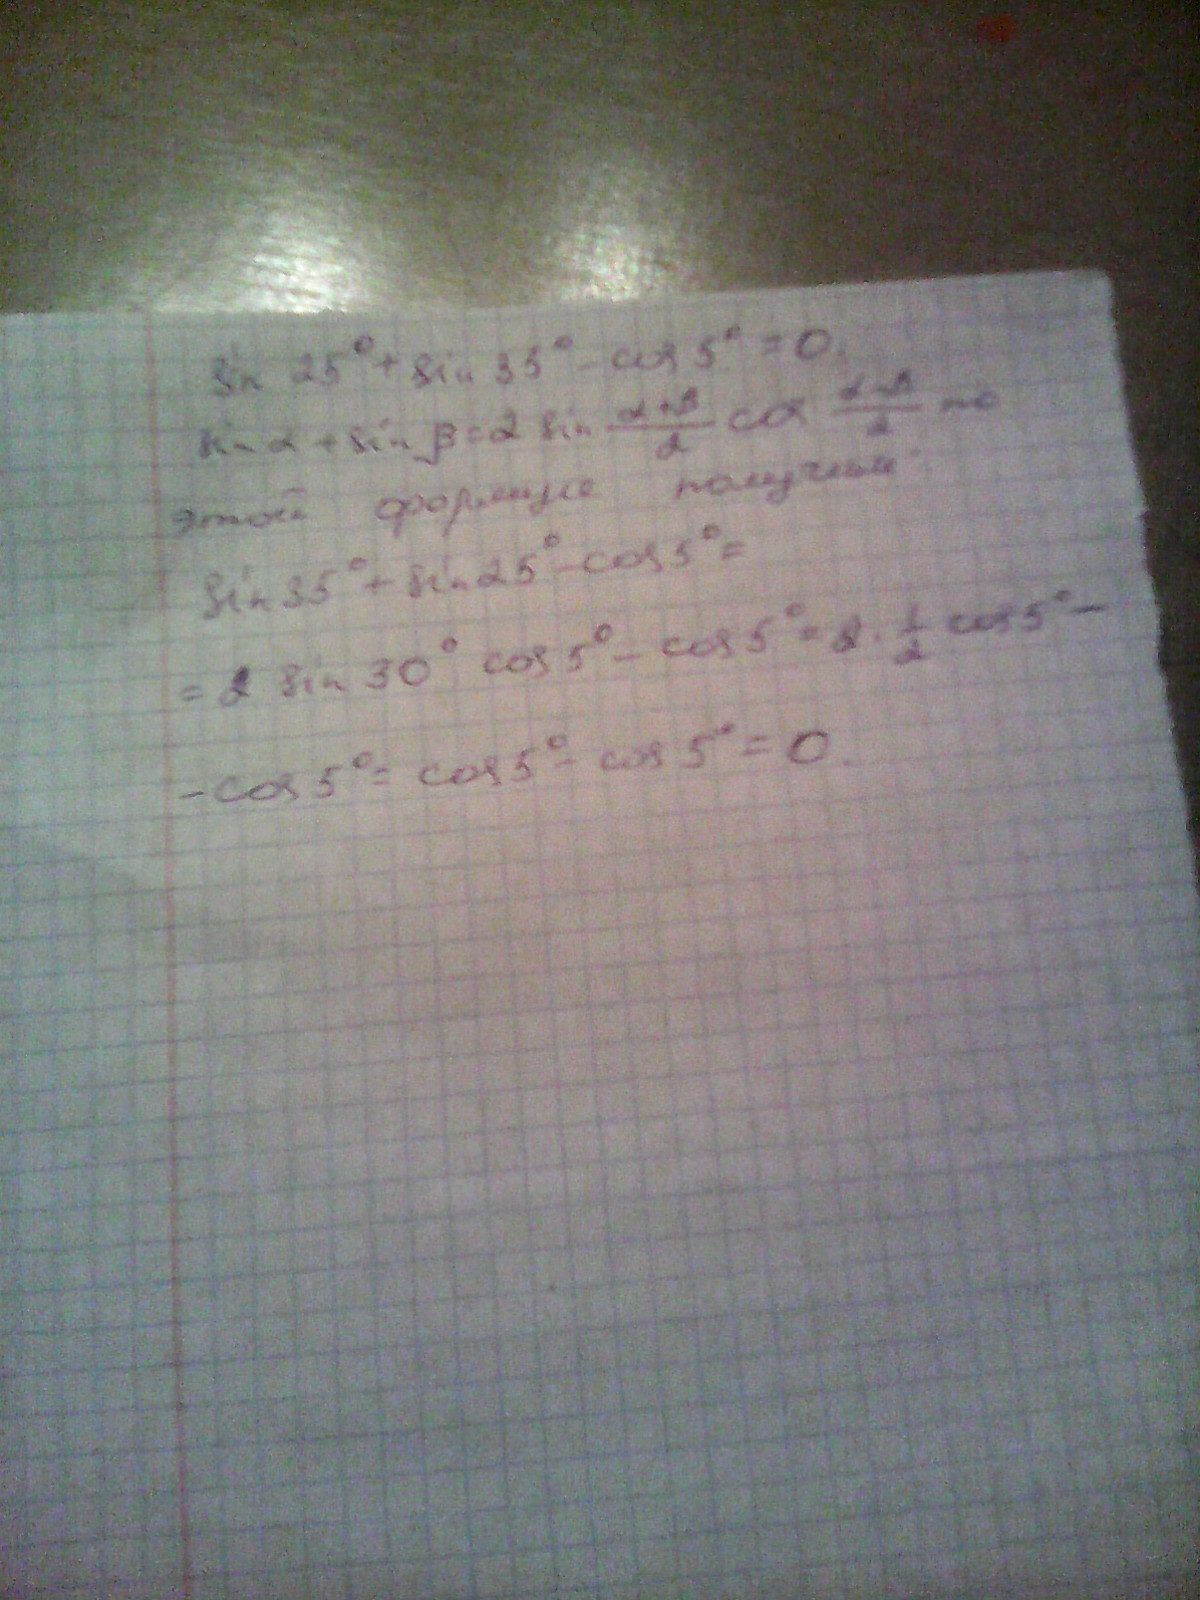 sin 25° + sin 35° - cos 5° = 0.
sin α + sin β = 2 sin (α+β)/2 cos (α-β)/2 по
этой формуле получим:
sin 35° + sin 25° - cos 5° =
= 2 sin 30° cos 5° - cos 5° = 2 · 1/2 cos 5° -
- cos 5° = cos 5° - cos 5° = 0.